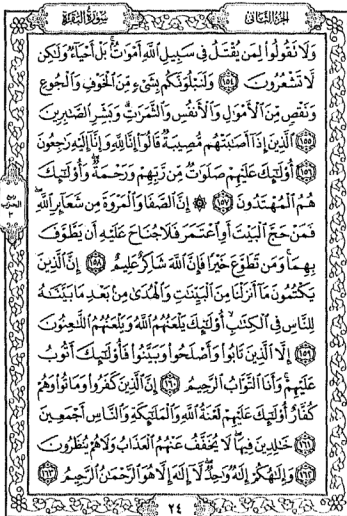 الجزء الثاني
سورة البقرة
وَلَا تَقُولُوا۟ لِمَن يُقْتَلُ فِى سَبِيلِ ٱللَّهِ أَمْوَٰتٌۢ بَلْ أَحْيَآءٌ وَلَٰكِن
لَّا تَشْعُرُونَ ١٥٤ وَلَنَبْلُوَنَّكُم بِشَىْءٍ مِّنَ ٱلْخَوْفِ وَٱلْجُوعِ
وَنَقْصٍ مِّنَ ٱلْأَمْوَٰلِ وَٱلْأَنفُسِ وَٱلثَّمَرَٰتِ وَبَشِّرِ ٱلصَّٰبِرِينَ
١٥٥ ٱلَّذِينَ إِذَآ أَصَٰبَتْهُم مُّصِيبَةٌ قَالُوٓا۟ إِنَّا لِلَّهِ وَإِنَّآ إِلَيْهِ رَٰجِعُونَ
١٥٦ أُو۟لَٰٓئِكَ عَلَيْهِمْ صَلَوَٰتٌ مِّن رَّبِّهِمْ وَرَحْمَةٌ وَأُو۟لَٰٓئِكَ
هُمُ ٱلْمُهْتَدُونَ ١٥٧ ۞ إِنَّ ٱلصَّفَا وَٱلْمَرْوَةَ مِن شَعَآئِرِ ٱللَّهِ
فَمَنْ حَجَّ ٱلْبَيْتَ أَوِ ٱعْتَمَرَ فَلَا جُنَاحَ عَلَيْهِ أَن يَطَّوَّفَ
بِهِمَا وَمَن تَطَوَّعَ خَيْرًا فَإِنَّ ٱللَّهَ شَاكِرٌ عَلِيمٌ ١٥٨ إِنَّ ٱلَّذِينَ
يَكْتُمُونَ مَآ أَنزَلْنَا مِنَ ٱلْبَيِّنَٰتِ وَٱلْهُدَىٰ مِنۢ بَعْدِ مَا بَيَّنَّٰهُ
لِلنَّاسِ فِى ٱلْكِتَٰبِ أُو۟لَٰٓئِكَ يَلْعَنُهُمُ ٱللَّهُ وَيَلْعَنُهُمُ ٱللَّٰعِنُونَ
١٥٩ إِلَّا ٱلَّذِينَ تَابُوا۟ وَأَصْلَحُوا۟ وَبَيَّنُوا۟ فَأُو۟لَٰٓئِكَ أَتُوبُ
عَلَيْهِمْ وَأَنَا ٱلتَّوَّابُ ٱلرَّحِيمُ ١٦٠ إِنَّ ٱلَّذِينَ كَفَرُوا۟ وَمَاتُوا۟ وَهُمْ
كُفَّارٌ أُو۟لَٰٓئِكَ عَلَيْهِمْ لَعْنَةُ ٱللَّهِ وَٱلْمَلَٰٓئِكَةِ وَٱلنَّاسِ أَجْمَعِينَ
١٦١ خَٰلِدِينَ فِيهَا لَا يُخَفَّفُ عَنْهُمُ ٱلْعَذَابُ وَلَا هُمْ يُنظَرُونَ
١٦٢ وَإِلَٰهُكُمْ إِلَٰهٌ وَٰحِدٌ لَّآ إِلَٰهَ إِلَّا هُوَ ٱلرَّحْمَٰنُ ٱلرَّحِيمُ ١٦٣
ربع
الحزب
٣
٢٤